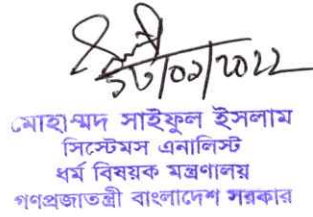 মোহাম্মদ সাইফুল ইসলাম
সিস্টেমস এনালিস্ট
ধর্ম বিষয়ক মন্ত্রণালয়
গণপ্রজাতন্ত্রী বাংলাদেশ সরকার